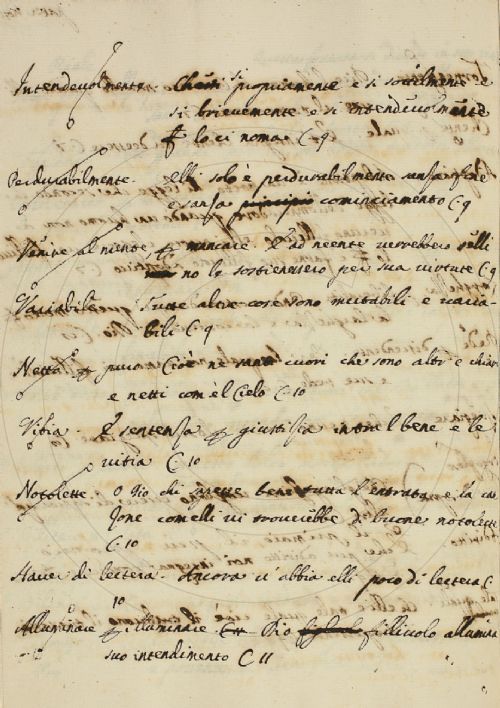 Intendevolmente. Chain si propriamente e si sovilmente e
si brievemente e si intendevolmente
lo ci noma C. 9
Perdurabilmente. Elli solo è perdurabilmente sansa fine
e sansa principio cominciamento C. 9
Venire al niente, p mancare. E ad neente verrebbero selli
no le sostenessero per sua virtute C. 9
Variabile Tutte altre cose sono mutabili e varia-
bili C. 9
Netto p puro Cioè ne cuori che sono alti e chiari
e netti com' el Cielo C. 10
Vitia. E sentensa p giustisia intra l bene e le
vitia C. 10
Notolette O Dio chi bene tutta l'entrata e la ca
Jone com elli vi troverebbe di buone notolette
C. 10
Haver di lectera. Ancora v' abbia elli poco di lectera C.
10
Alluminare p illuminare Dio figliuolo allumina
suo intendimento C 11